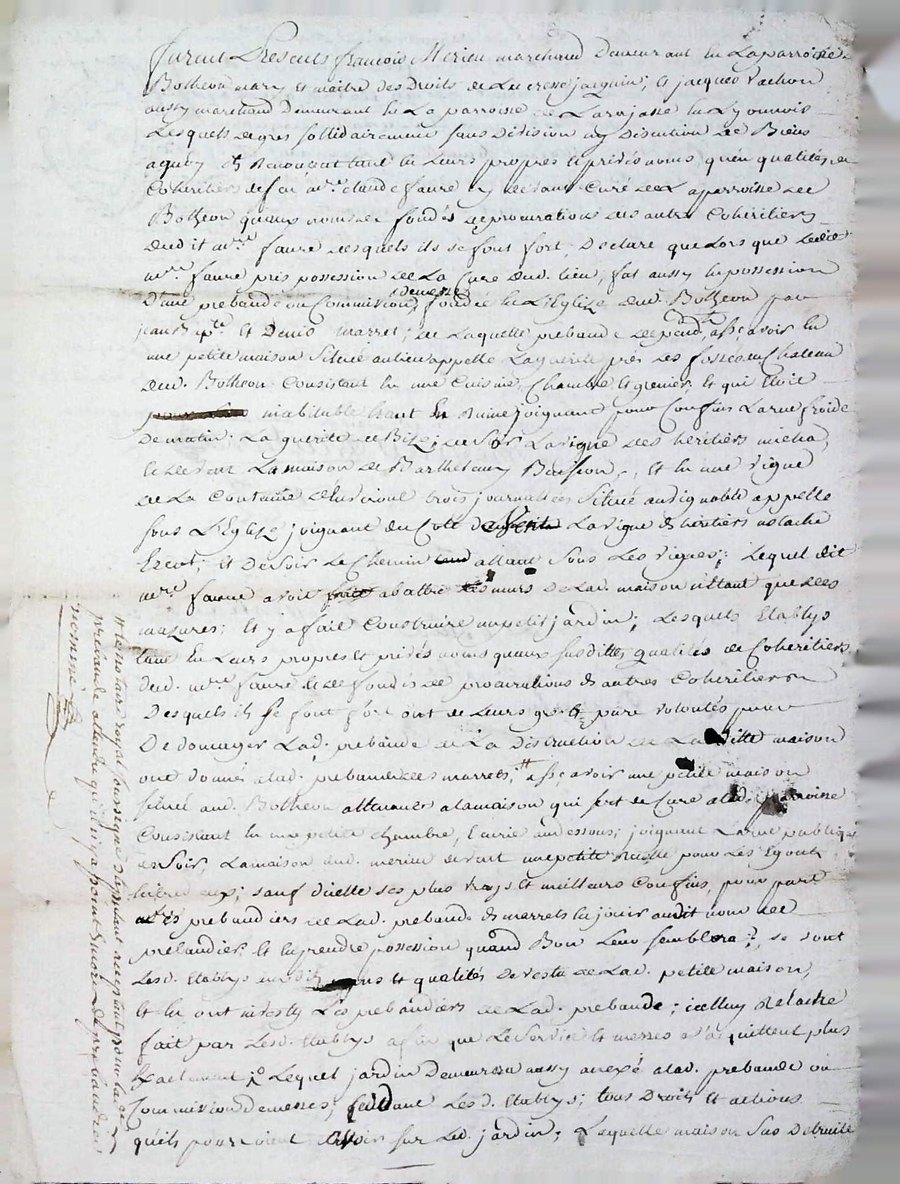 furent Presents francois Merieu marchand demeurant en La parroisse
Botheon mary et maitre des Droits de Lucresse jacquin; et jacques
aussy marchand demeurant en La parroisse de Larajasse en Lyonnois
Lesquels de gres sollidairement sans division ny discution de Biens
a quoy ils Renonçent tant en Leurs propres et privés noms qu'en qualités de
Coheritiers de feu mre claude faure curé de La parroisse de
Botheon qu'aux noms de fondés de procurations des autres Coheritiers
dudit mre faure desquels ils se font fort, Declare que Lors que Ledit
mre faure pris possession de La Cure dud. lieu, fut aussy en possession
d'une prebande ou Commission de messes fondée en L'Eglise dud. Botheon par
jean et Denis marret; de Laquelle prebande depend, assçavoir en
une petite maison Situé au lieu appellé La guerite près Les fossés du Chateau
dud. Botheon Consistant en une Cuisine, Chambre et grenier, et qui Etoit
inabitable étant En Ruine joignant pour Confins La rue froide
de matin; La guerite de Bize; de Soir La vigne des heritiers
et de vent La maison de Barthelemy Et en une vigne
de La Contenue d'Environ trois journallées Situé au vignoble appellé
sous L'Eglise joignant du Coté La vigne des heritiers
et de Soir Le Chemin allant Sous Les vignes; Lequel dit
mre faure avoit abattre Les murs de Lad. maison n'étant que des
mazures; Et y a fait Construire un petit jardin; Lesquels Etablys
tant en Leurs propres et privés noms qu'aux susdittes qualités de Coheritiers
dud. mre faure et de fondés de procurations des autres Coheritiers
Desquels ils se font fort ont de Leurs gré et pure volontés pour
Dedomager Lad. prebande de La distruction de Laditte maison
ont donnés a lad. prebande des marrets, # assçavoir une petite maison
situé aud. Botheon attenant a la maison qui sert de Cure a lad. parroisse
Consistant en une petite chambre, Ecurie au dessous; joignant La rue publique
de Soir, La maison dud. merieu de vent une petite ruelle pour Les Egouts
entre eux; sauf d'icelle ses plus vrays et meilleurs Confins, pour par
prebandiers de Lad. prebande des marrets en jouir audit nom de
prebandier et en prendre possession quand Bon Leur semblera; se sont
Lesd. Etablys noms et qualités devestu de Lad. petite maison,
Et en ont investy Les prebandiers de Lad. prebande; icelluy Relache
fait par Lesd. Etablys afin que Le Service et messes s'acquittent plus
Exactement Lequel jardin Demeurera aussy anexé a lad. prebande ou
Commission de messes; Lesd. Etablys; tous Droits et actions
qu'ils pourroient avoir sur Led. jardin; Laquelle maison Sus Detruite
# Le notaire royal
prebande attendu qu'il n'y a point Encore de prebandier
nommé